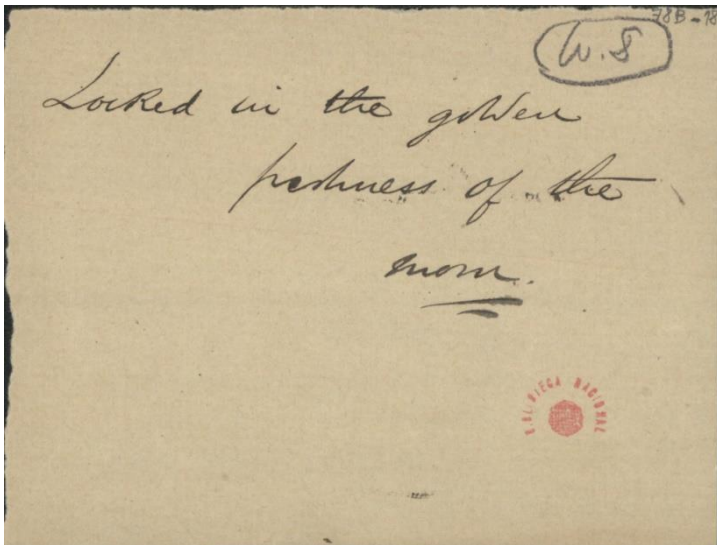 78B-18
W.S
Locked in the golden
freshness of the
morn.
BIBLIOTECA NACIONAL